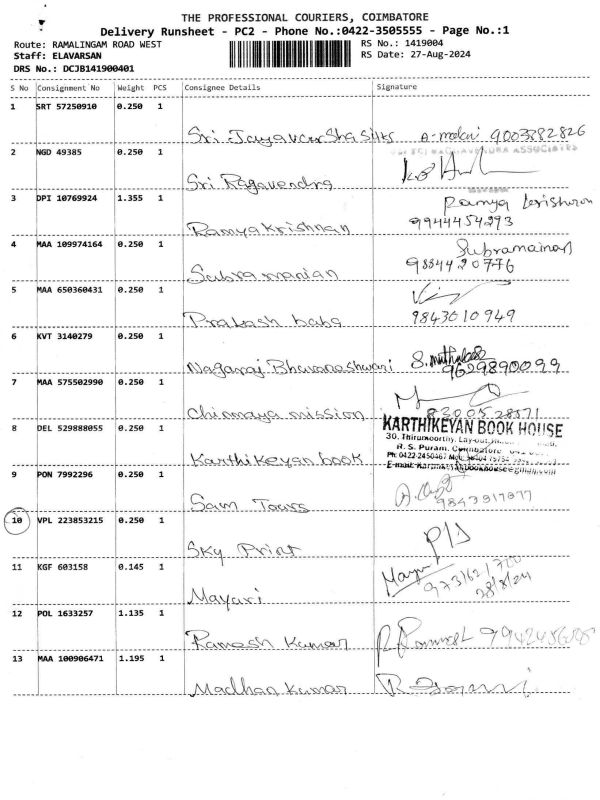 THE PROFESSIONAL COURIERS, COIMBATORE
Delivery Runsheet - PC2 - Phone No.:0422-3505555 - Page No.:1
Route: RAMALINGAM ROAD WEST RS No.: 1419004
Staff: ELAVARSAN RS Date: 27-Aug-2024
DRS No.: DCJB141900401
S No Consignment No Weight PCS Consignee Details Signature
1 SRT 57250910 0.250 1
Sri 9003382826
2 NGD 49385 0.250 1
Sri Ragavendra
3 DPI 10769924 1.355 1
Ramya
Ramya Krishnan 9944454293
4 MAA 109974164 0.250 1
Subramainan
Subramanian 9884420776
5 MAA 650360431 0.250 1
Prakash babu 9843010949
6 KVT 3140279 0.250 1
Nagaraj Bhuvaneshwari 9629890099
7 MAA 575502990 0.250 1
Chinmaya mission
8 DEL 529888055 0.250 1
KARTHIKEYAN BOOK HOUSE
30, Thirumoorthy, Lay-out,
R. S. Puram, Coimbatore
Karthikeyan book Ph: 0422-2450467
9 PON 7992296 0.250 1
Sam Tours
10 VPL 223853215 0.250 1
Sky Print
11 KGF 603158 0.145 1
Mayuri 28/8/24
12 POL 1633257 1.135 1
Ramesh Kumar
13 MAA 100906471 1.195 1
Madhan Kumar